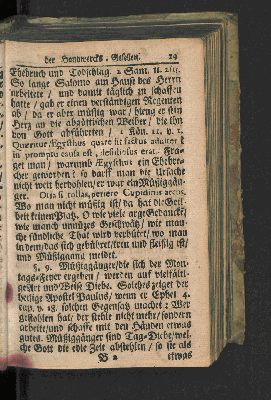 der Handwercks-Gesellen. 29
Ehebruch und Todschlag. 2 Sam. 11.
So lange Salomo am Hause des Herrn
arbeitete / und damit täglich zu schaffen
hatte / gab er einen verständigen Regenten
ab / da er aber müssig war / hieng er sein
Hertz an die abgöttischen Weiber / die ihn
von Gott abführeten / 1 Kön. 11. v. 1.
Quæritur, Ægysthus quare sit factus adulter?
in promptu causa est, desidiosus erat. Fra-
get man / warumb Ægysthus ein Ehebre-
cher geworden? so darff man die Ursache
nicht weit herhohlen / er war ein Müßiggän-
ger. Otia si tollas, periere Cupidinis arcus.
Wo man nicht müßig ist / da hat die Geil-
heit keinen Platz. O wie viele arge Gedancken /
wie manch unnützes Geschwätz / wie man-
che sündliche That wird verhütet / wo man
in dem / das sich gebühret / treu und fleißig ist /
und Müßiggang meidet.
§. 9. Müßiggänger / die sich der Mon-
tags-Feyer ergeben / werden auf vielfälti-
ge Art und Weise Diebe. Solches zeiget der
heilige Apostel Paulus / wenn er Ephes. 4.
cap. v. 18. solchen Gegensatz machet: Wer
gestohlen hat / der stehle nicht mehr / sondern
arbeite / und schaffe mit den Händen etwas
gutes. Müßiggänger sind Tag-Diebe / wel-
che Gott die edle Zeit abstehlen / so sie als
B 2 etwas